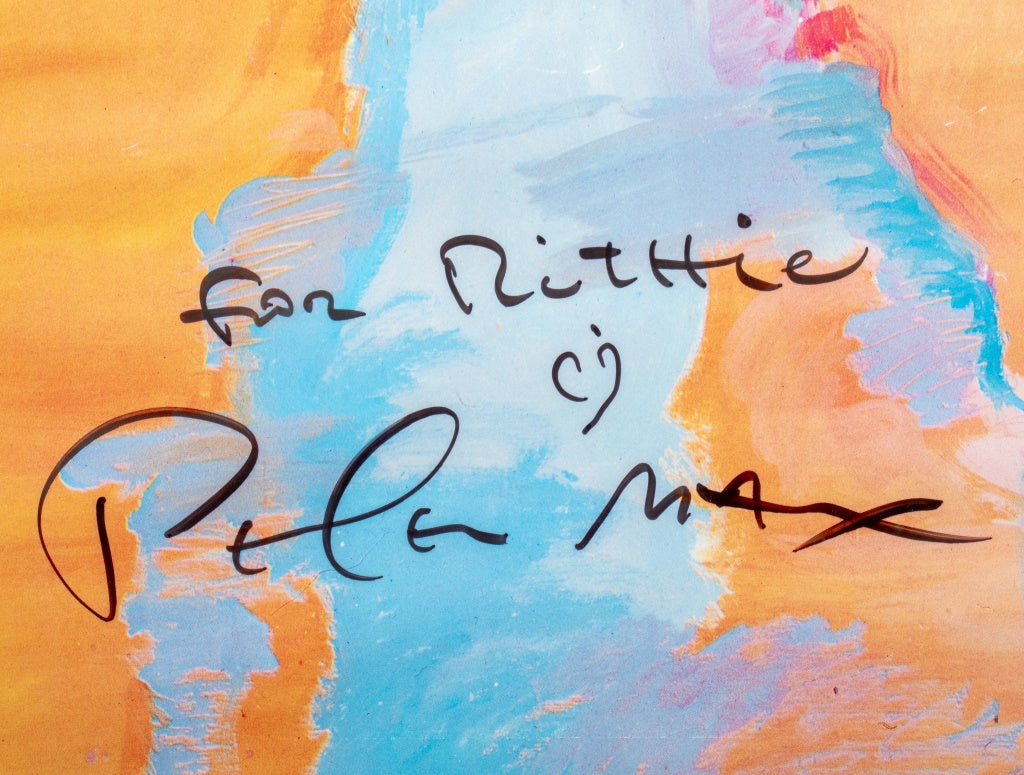 for RitHie
Peter Max